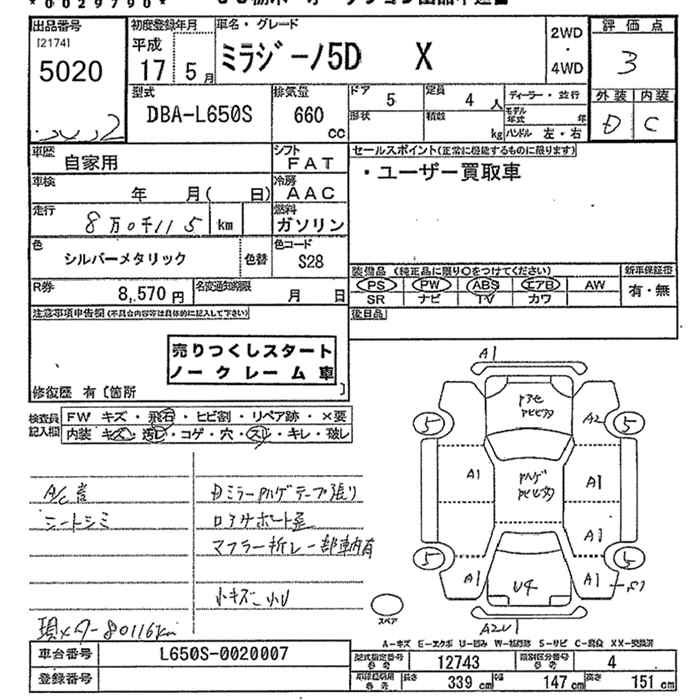 *0029790*
出品番号 初度登録年月 車名・グレード 評価点
[2174] 平成 2WD
5020 17 5月 ミラジーノ5D X ・ 3
4WD
型式 排気量 ドア 5 定員 4人 ディーラー・並行 外装 内装
DBA-L650S 660 cc 形状 積数 kg モデル年式 年 D C
ハンドル 左・右
車歴 自家用 シフト FAT セールスポイント(正常に機能するものに限ります)
車検 年 月( 日) 冷房 AAC ・ユーザー買取車
走行 8万0千115 km 燃料 ガソリン
色 シルバーメタリック 色替 色コード S28
装備品 (純正品に限り○をつけてください) 新車保証書
R券 8,570円 名変通知期限 月 日 PS PW ABS エアB AW 有・無
SR ナビ TV カワ
注意事項申告欄(不具合内容等は具体的に記入して下さい) 後日品
売りつくしスタート
ノークレーム車
修復歴 有〔箇所
検査員記入欄 FW キズ・飛石・ヒビ割・リペア跡・×要
内装 キズ・汚レ・コゲ・穴・スレ・キレ・破レ
シートシミ
小キズ 小U
現メーター80116km
A1
5 A2 5
A1 A1
A1
5 A1 U4 A1 5
A2U1
スペア
A-キズ E-エクボ U-凹み W-補修跡 S-サビ C-腐食 XX-交換済
車台番号 L650S-0020007 型式指定番号 参考 12743 類別区分番号 参考 4
登録番号 長さ 339cm 幅 147cm 高さ 151cm